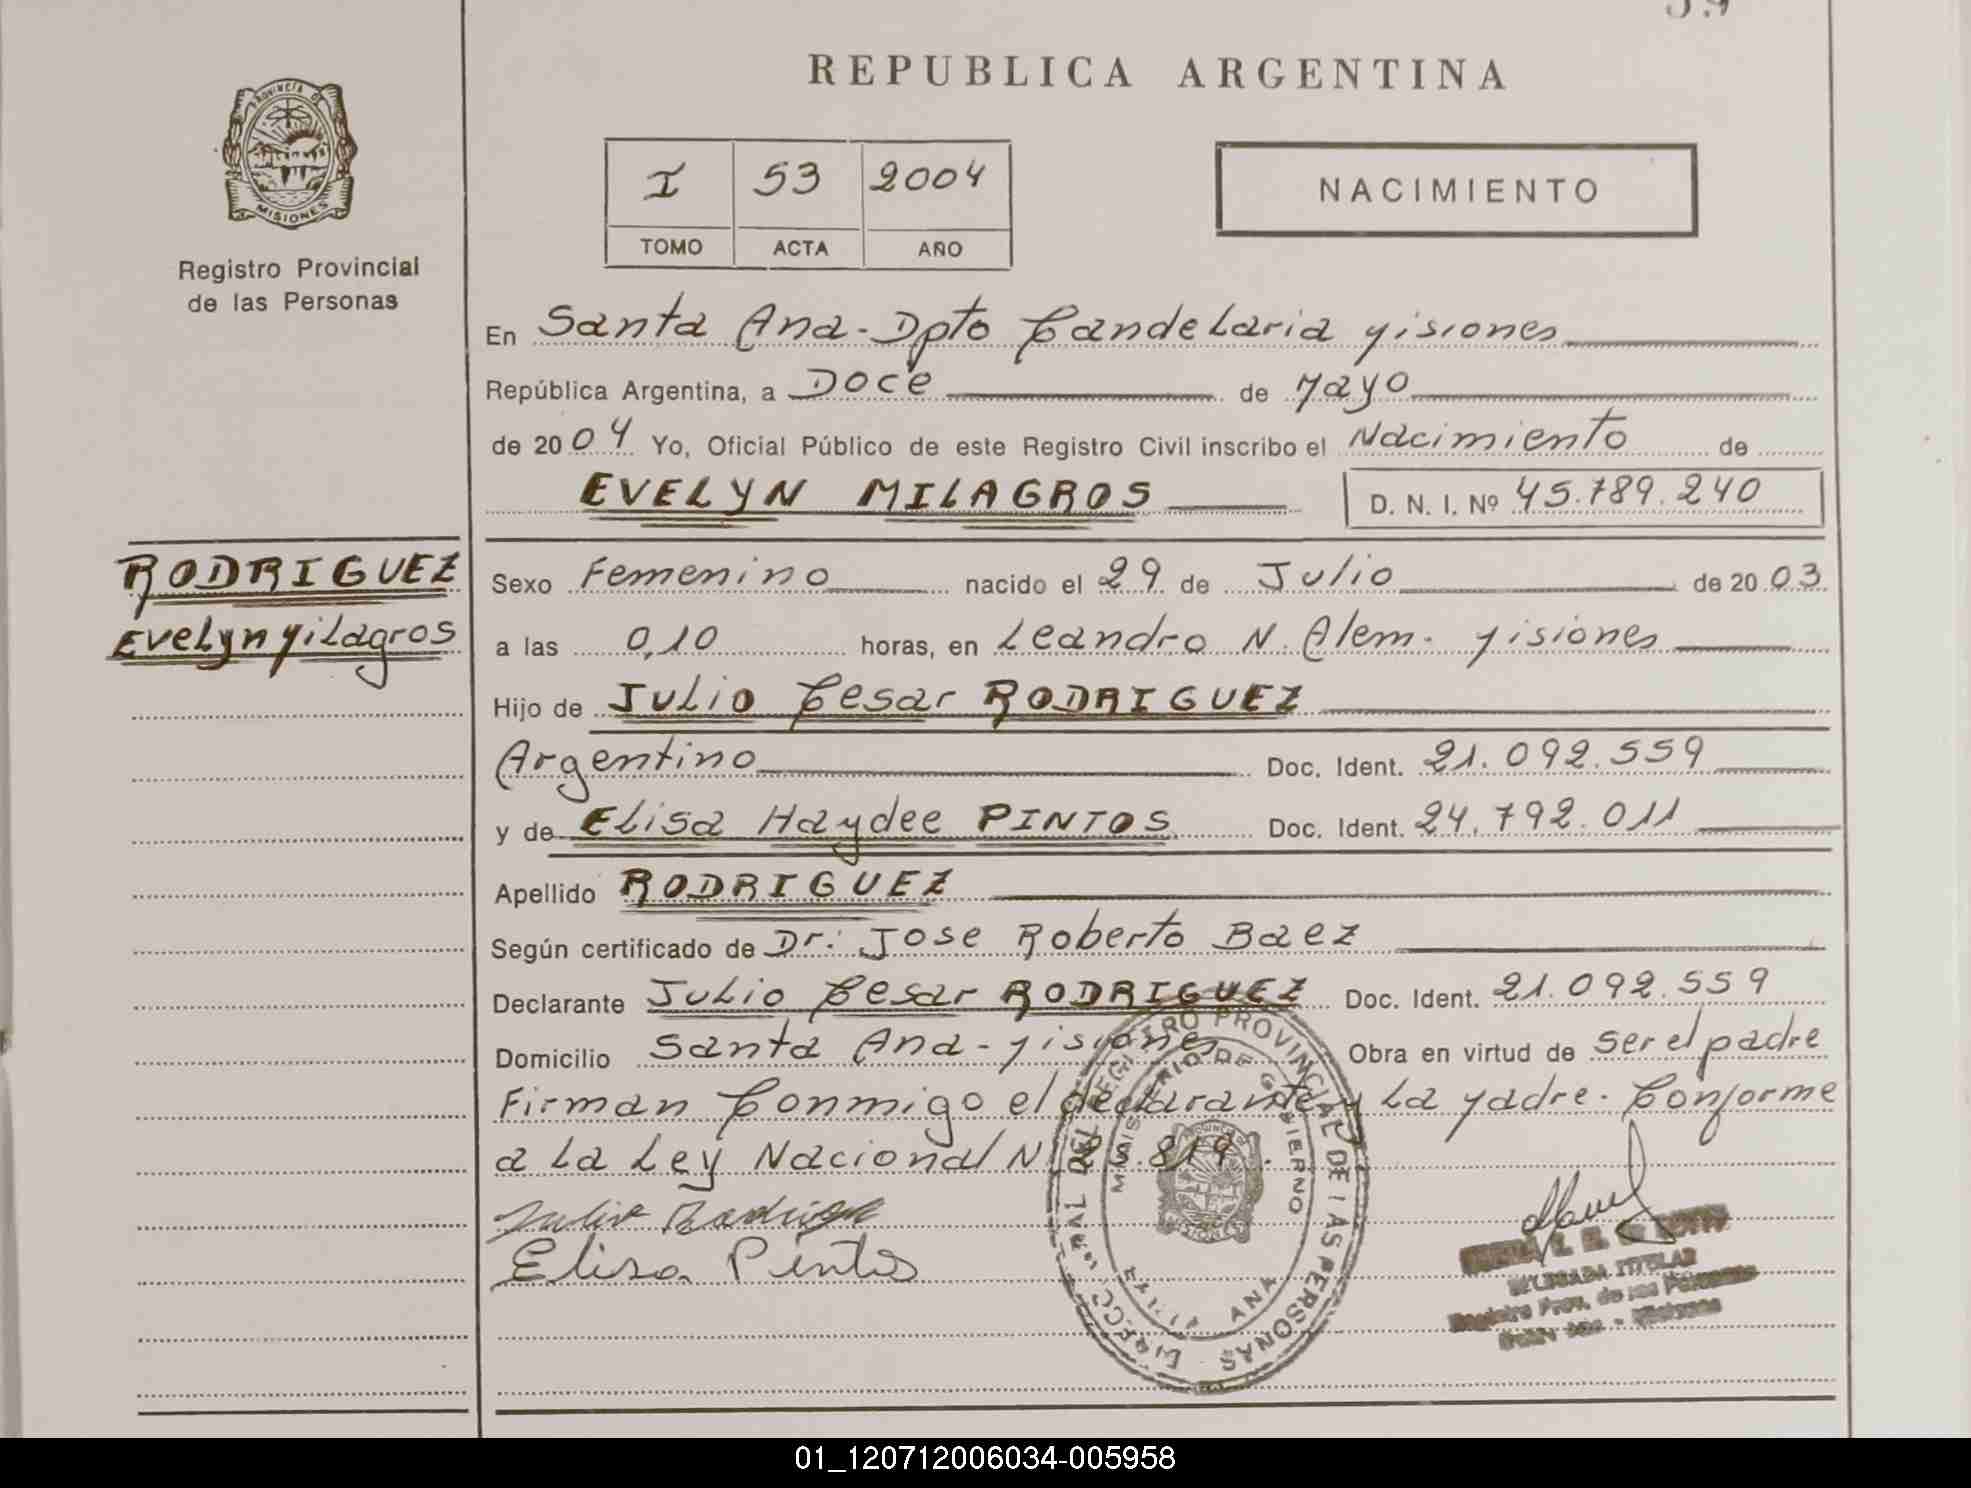 REPUBLICA ARGENTINA
PROVINCIA DE
MISIONES
Registro Provincial
de las Personas
I 53 2004
TOMO ACTA AÑO
NACIMIENTO
En Santa Ana - Dpto Candelaria Misiones
República Argentina, a Doce de Mayo
de 2004 Yo, Oficial Público de este Registro Civil inscribo el Nacimiento de
EVELYN MILAGROS D. N. I. Nº 45.789.240
RODRIGUEZ
Evelyn Milagros
Sexo Femenino nacido el 29 de Julio de 2003
a las 0,10 horas, en Leandro N. Alem - Misiones
Hijo de Julio Cesar RODRIGUEZ
Argentino Doc. Ident. 21.092.559
y de Elisa Haydee PINTOS Doc. Ident. 24.792.011
Apellido RODRIGUEZ
Según certificado de Dr: Jose Roberto Baez
Declarante Julio Cesar RODRIGUEZ Doc. Ident. 21.092.559
Domicilio Santa Ana - Misiones Obra en virtud de ser el padre
Firman Conmigo el declarante y La Madre. Conforme
a La Ley Nacional N 25.819.
Julio Rodriguez
Elisa Pintos
REGISTRO PROVINCIAL DE LAS PERSONAS
MINISTERIO DE GOBIERNO
ANA
DELEGADA TITULAR
Registro Prov. de las Personas
Santa Ana - Misiones
01_120712006034-005958